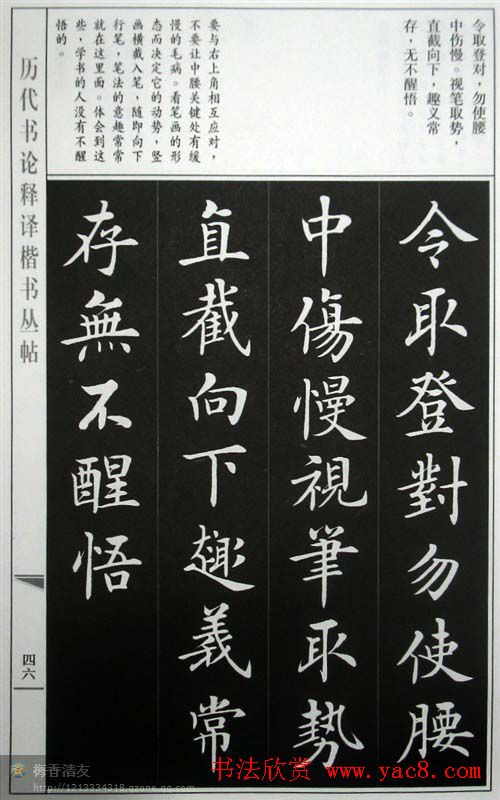 令取登对，勿使腰
中伤慢。视笔取势，
直截向下，趣义常
存，无不醒悟。
要与右上角相互应对，
不要让中腰关键处有缓
慢的毛病。看笔画的形
态而决定它的动势，竖
画横截入笔，随即向下
行笔，笔法的意趣常常
就在这里面。体会到这
些，学书的人没有不醒
悟的。
令取登對勿使腰
中傷慢視筆取勢
直截向下趣義常
存無不醒悟
历代书论释译楷书丛帖
四六
梅香清友
http://1213334318.qzone.qq.com
书法欣赏：www.yac8.com